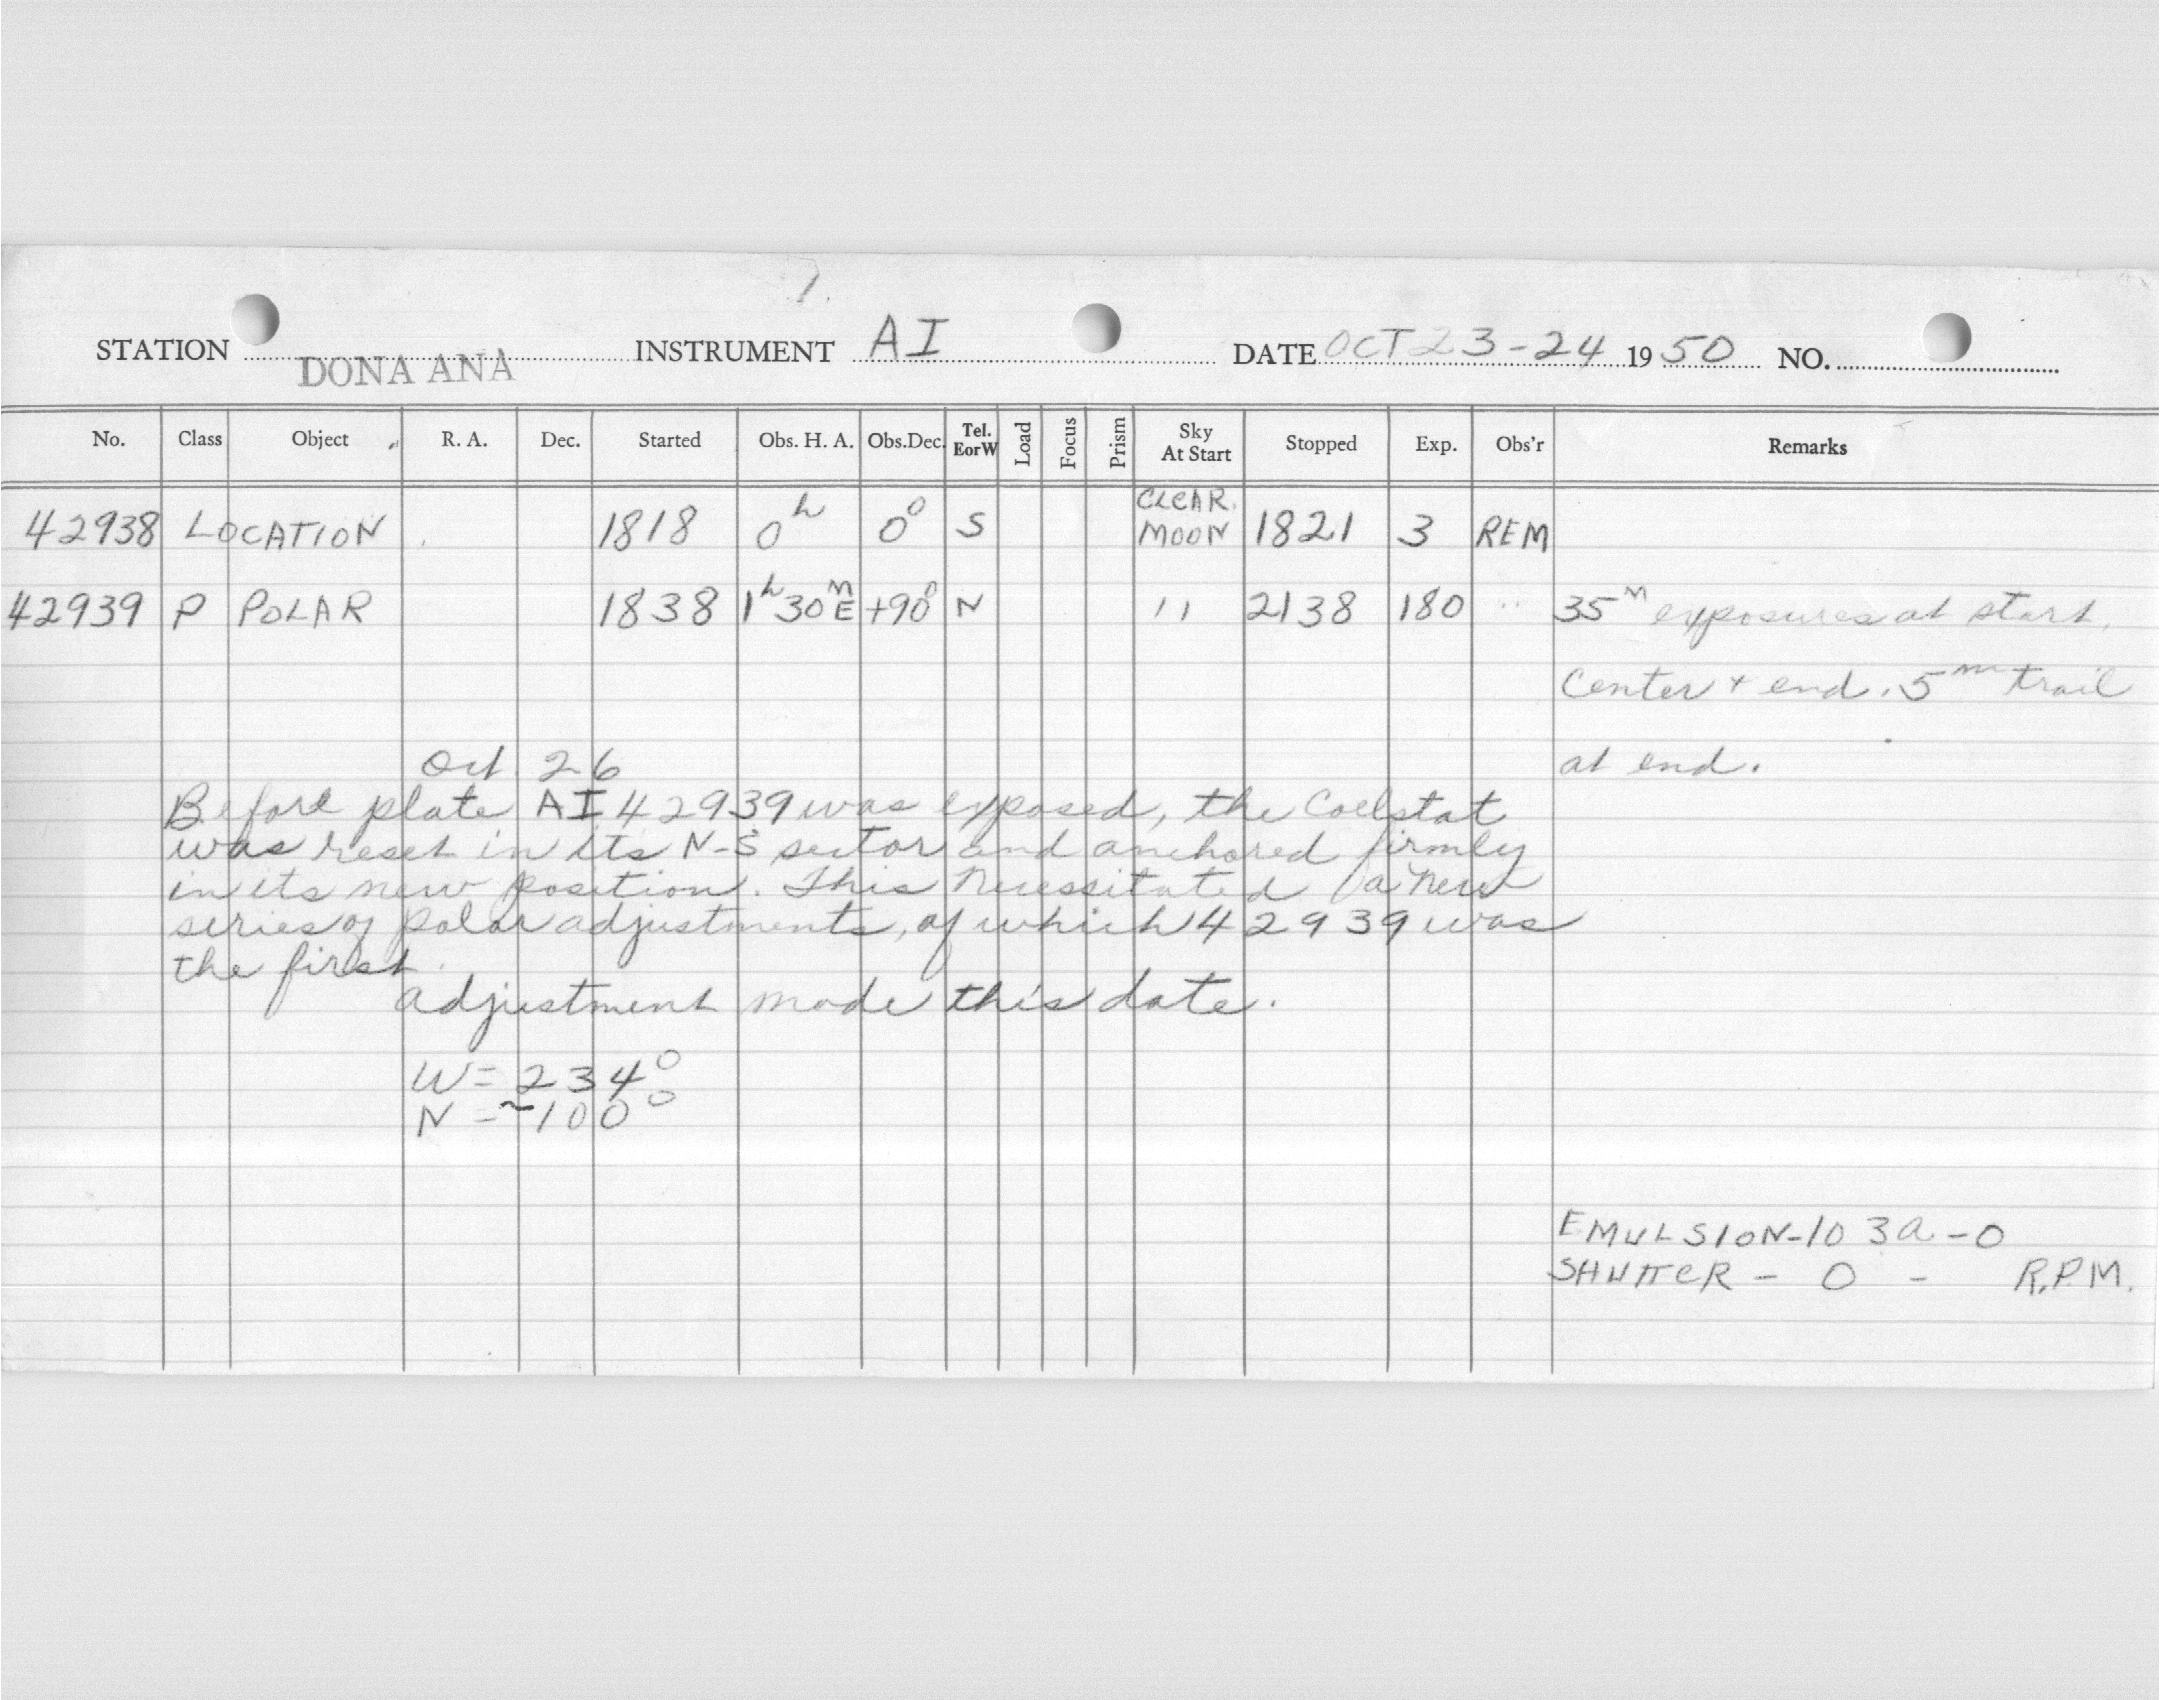 1.
STATION DONA ANA INSTRUMENT AI DATE OCT 23-24 1950 NO.
No. Class Object R. A. Dec. Started Obs. H. A. Obs.Dec. Tel. EorW Load Focus Prism Sky At Start Stopped Exp. Obs'r Remarks
42938 LOCATION 1818 0h 0° S CLEAR. MOON 1821 3 REM
42939 P POLAR 1838 1h 30m E +90° N " 2138 180 " 35m exposures at start,
center + end. 5m trail
at end.
Oct. 26
Before plate AI 42939 was exposed, the Coelstat
was reset in its N-S sector and anchored firmly
in its new position. This necessitated a new
series of polar adjustments, of which 42939 was
the first.
adjustment made this date.
W = 234°
N = ~100°
EMULSION-103a-O
SHUTTER - 0 - R.P.M.